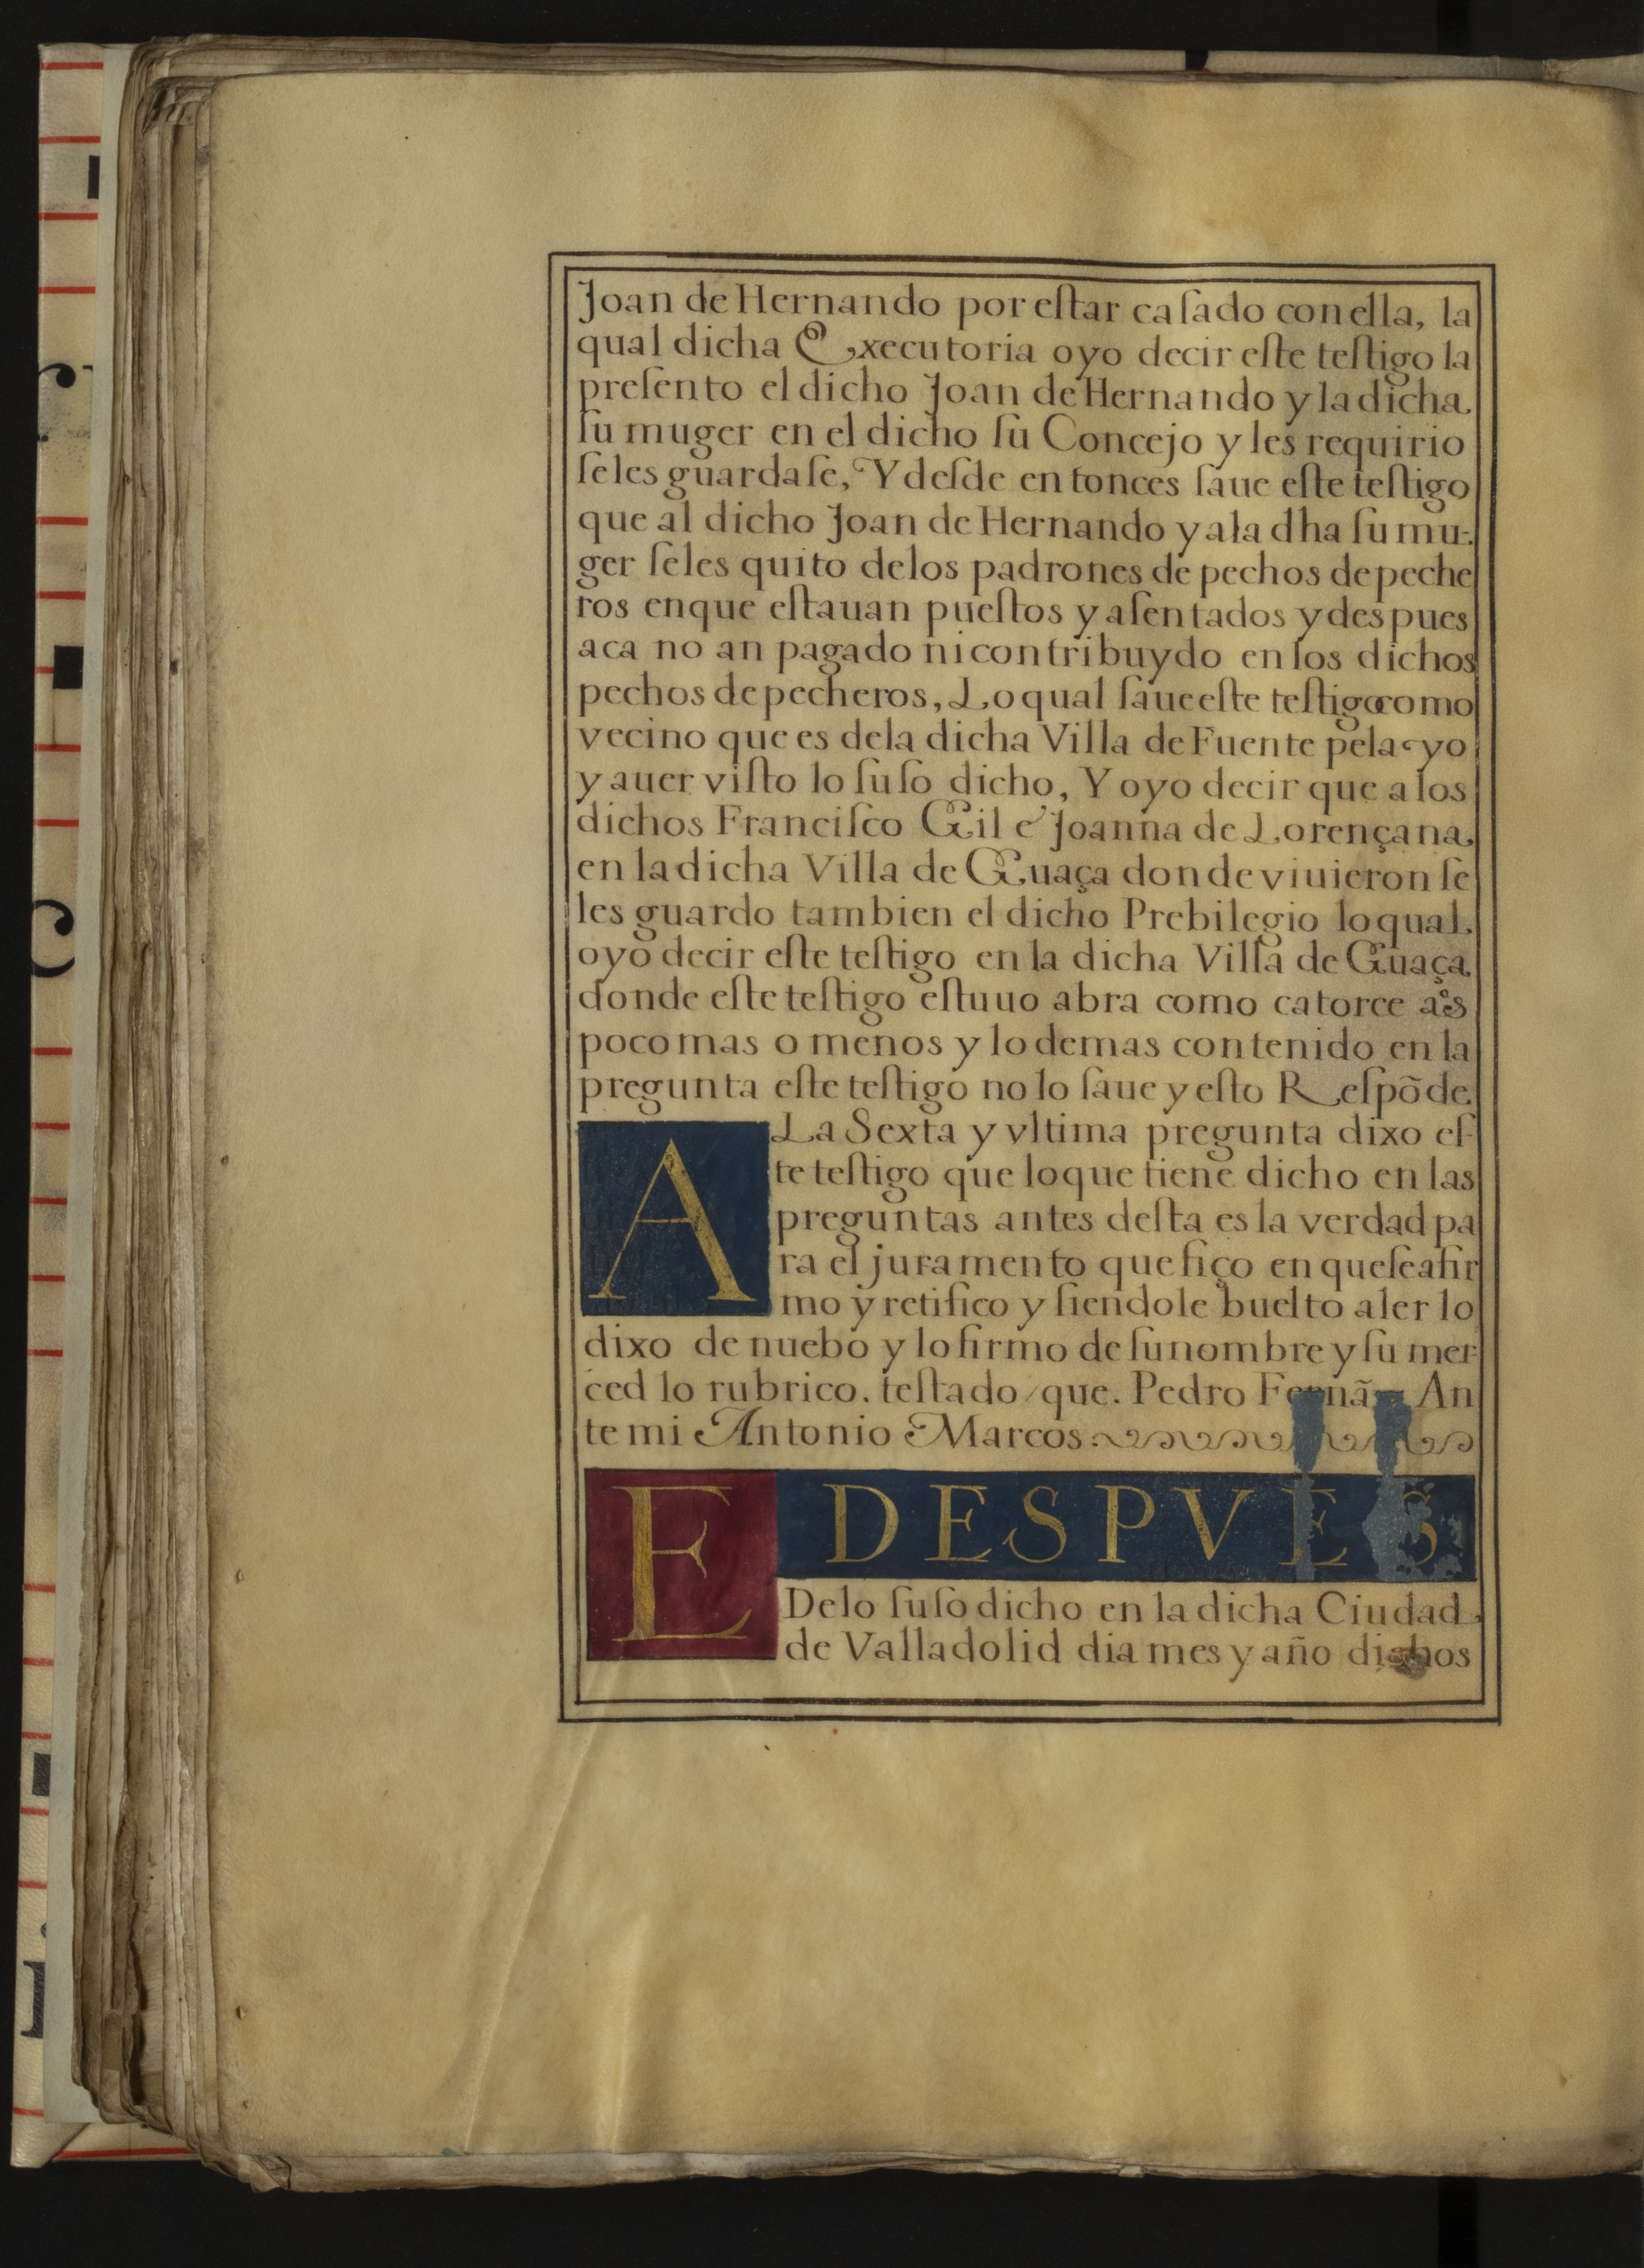 Joan de Hernando por eſtar caſado con ella, la
qual dicha Executoria oyo decir eſte teſtigo la
preſento el dicho Joan de Hernando y la dicha
ſu muger en el dicho ſu Concejo y les requirio
ſe les guardaſe, Y deſde entonces ſaue eſte teſtigo
que al dicho Joan de Hernando y a la dha ſu mu-
ger ſe les quito de los padrones de pechos de peche
ros en que eſtauan pueſtos y aſentados y despues
aca no an pagado ni contribuydo en los dichos
pechos de pecheros, Lo qual ſaue eſte teſtigo como
vecino que es de la dicha Villa de Fuente pelayo
y auer viſto lo ſuſo dicho, Y oyo decir que a los
dichos Franciſco Gil e Joanna de Lorençana
en la dicha Villa de Guaça donde viuieron ſe
les guardo tambien el dicho Prebilegio lo qual
oyo decir eſte teſtigo en la dicha Villa de Guaça
donde eſte teſtigo eſtuuo abra como catorce aºs
poco mas o menos y lo demas contenido en la
pregunta eſte teſtigo no lo ſaue y eſto Reſpõde.
A La Sexta y vltima pregunta dixo eſ-
te teſtigo que lo que tiene dicho en las
preguntas antes deſta es la verdad pa
ra el juramento que fiço en que ſe afir
mo y retifico y ſiendole buelto a ler lo
dixo de nuebo y lo firmo de ſu nombre y ſu mer-
ced lo rubrico. teſtado / que. Pedro An
te mi Antonio Marcos.
E DESPVES
De lo ſuſo dicho en la dicha Ciudad
de Valladolid dia mes y año dichos